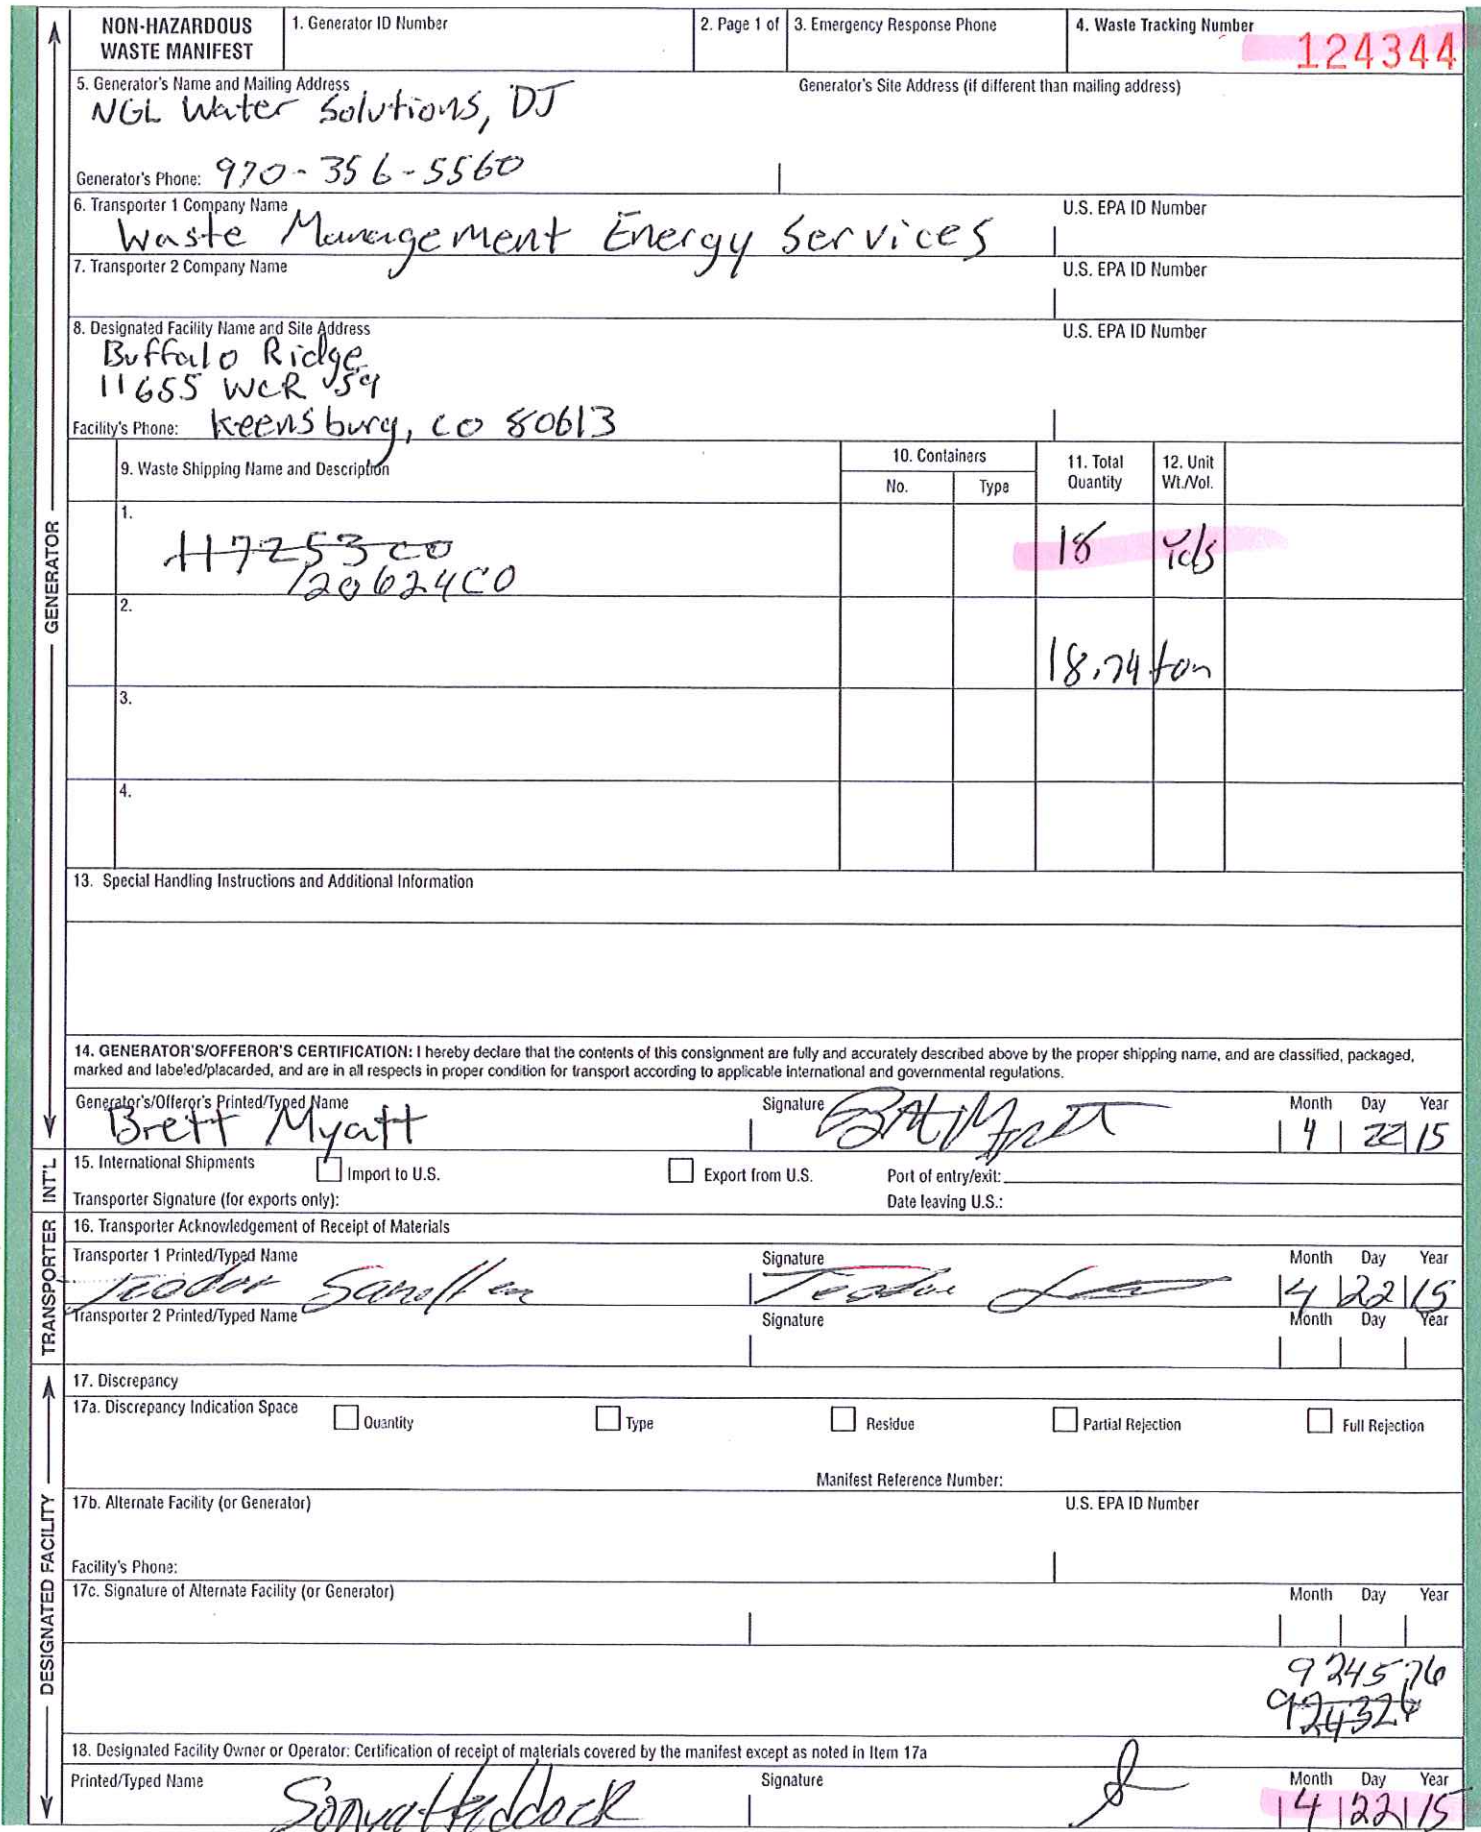 NON-HAZARDOUS WASTE MANIFEST
1. Generator ID Number
2. Page 1 of
3. Emergency Response Phone
4. Waste Tracking Number
124344
5. Generator's Name and Mailing Address
Generator's Site Address (if different than mailing address)
NGL Water Solutions, DJ
Generator's Phone: 970-356-5560
6. Transporter 1 Company Name
U.S. EPA ID Number
Waste Management Energy Services
7. Transporter 2 Company Name
U.S. EPA ID Number
8. Designated Facility Name and Site Address
U.S. EPA ID Number
Buffalo Ridge
11655 WCR 59
Facility's Phone: Keensburg, CO 80613
9. Waste Shipping Name and Description
10. Containers
No.
Type
11. Total Quantity
12. Unit Wt./Vol.
1.
117253 CO
120624CO
18 Yds
2.
18.74 ton
3.
4.
13. Special Handling Instructions and Additional Information
14. GENERATOR'S/OFFEROR'S CERTIFICATION: I hereby declare that the contents of this consignment are fully and accurately described above by the proper shipping name, and are classified, packaged,
marked and labeled/placarded, and are in all respects in proper condition for transport according to applicable international and governmental regulations.
Generator's/Offeror's Printed/Typed Name
Signature
Month Day Year
Brett Myatt
4 22 15
15. International Shipments
Import to U.S.
Export from U.S.
Port of entry/exit:
Transporter Signature (for exports only):
Date leaving U.S.:
16. Transporter Acknowledgement of Receipt of Materials
Transporter 1 Printed/Typed Name
Signature
Month Day Year
4 22 15
Transporter 2 Printed/Typed Name
Signature
Month Day Year
17. Discrepancy
17a. Discrepancy Indication Space
Quantity
Type
Residue
Partial Rejection
Full Rejection
Manifest Reference Number:
17b. Alternate Facility (or Generator)
U.S. EPA ID Number
Facility's Phone:
17c. Signature of Alternate Facility (or Generator)
Month Day Year
924576
924326
18. Designated Facility Owner or Operator: Certification of receipt of materials covered by the manifest except as noted in Item 17a
Printed/Typed Name
Signature
Month Day Year
Sonya Haddock
4 22 15
GENERATOR
INT'L
TRANSPORTER
DESIGNATED FACILITY